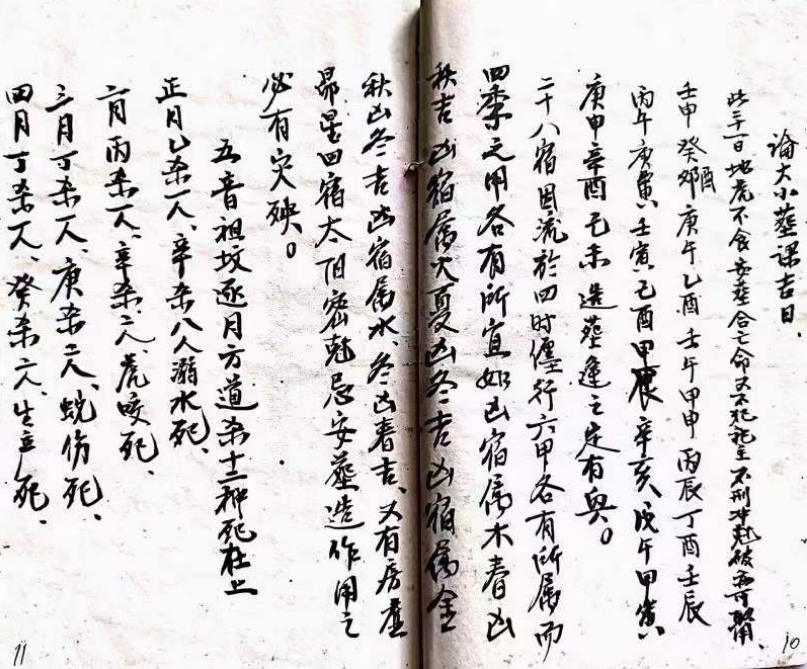 論大小葬课吉日、
此二十一日地虎不食安葬合亡命又不犯祀主不刑冲尅破方可取用、
壬申癸酉庚午乙酉壬午甲申丙辰丁酉壬辰
丙午庚寅壬寅己酉甲辰辛亥戊午甲寅
庚申辛酉乙未造葬逢之定有興。
二十八宿因流於四时缠行六甲各有所属而
四季之用各有所宜如凶宿属木春凶
秋吉凶宿属火夏凶冬吉凶宿属金
秋凶冬吉凶宿属水、冬凶春吉、又有房虚
昴星四宿太阳密尅忌安葬造作用之
必有灾殃。
五音祖坟逐月方道杀十二种死在上
正月乙杀一人、辛杀八人溺水死、
二月丙杀一人、辛杀二人、虎咬死、
三月丁杀一人、庚杀二人、蛇伤死、
四月丁杀一人、癸杀二人、生产死、
10
11